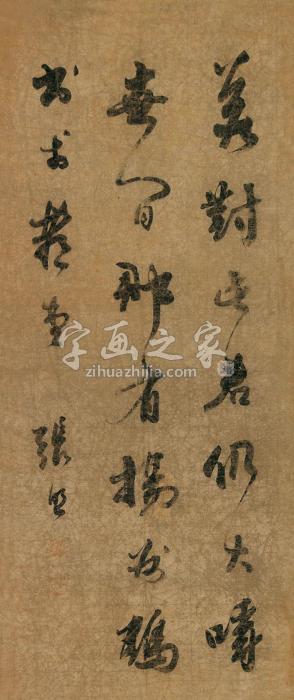 若對此君仍大嚼
世間那有揚州鶴
書古槑堂 張照
字画之家
zihuazhijia.com